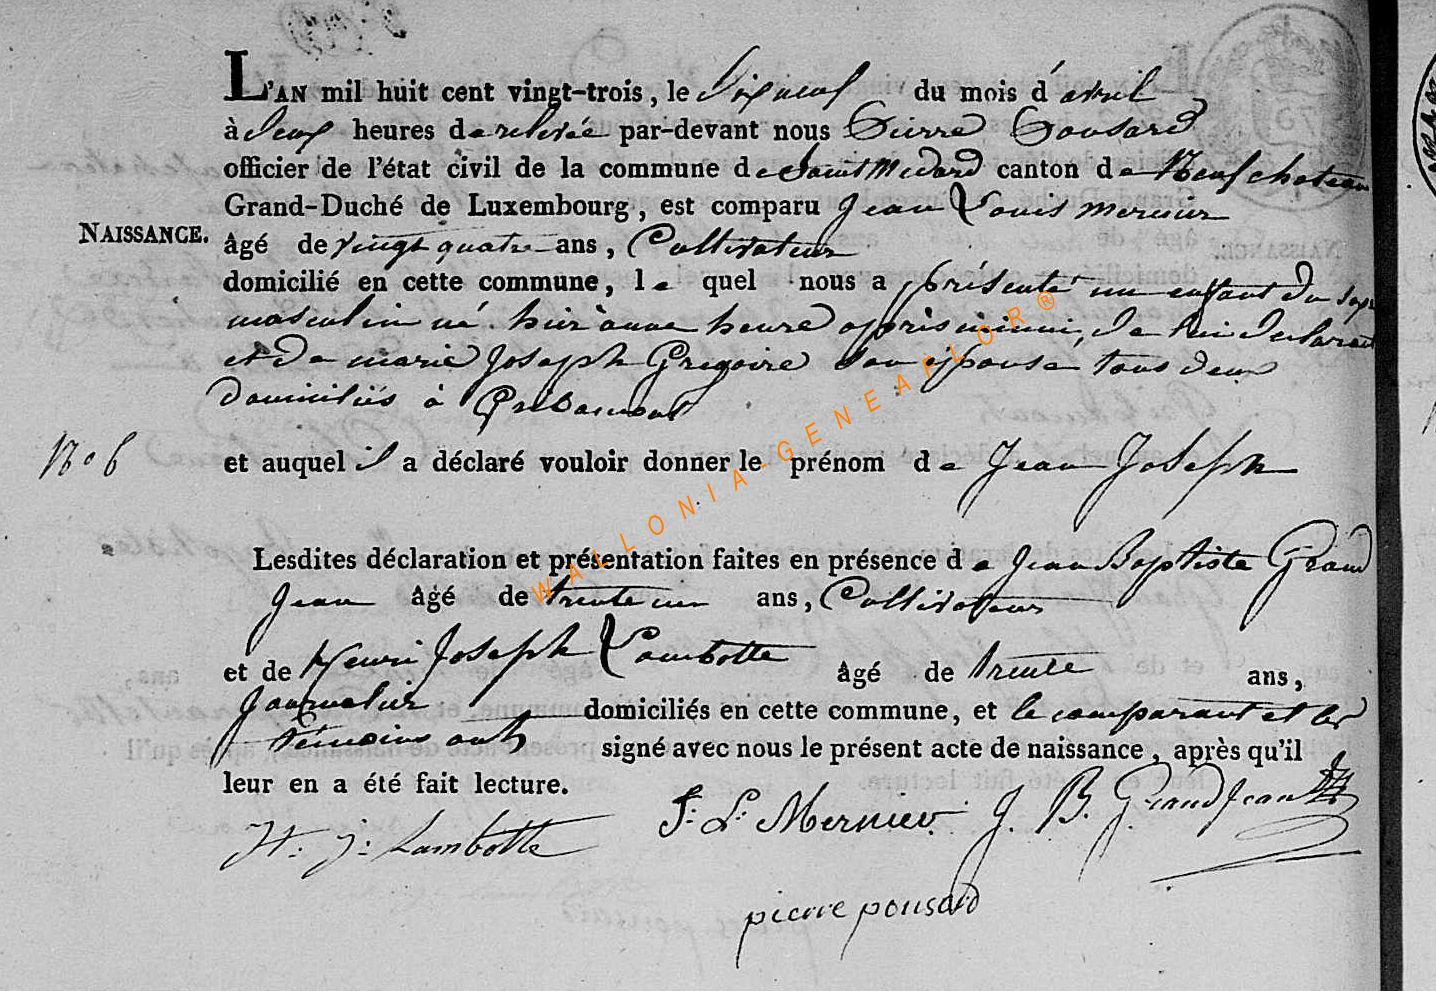 L'AN mil huit cent vingt-trois, le dixneuf du mois d'avril
à deux heures de relevée par-devant nous Pierre Pousard
officier de l'état civil de la commune de Saint Medard canton de Neufchateau
Grand-Duché de Luxembourg, est comparu Jean Louis mernier
NAISSANCE.
âgé de vingt quatre ans, Cultivateur
domicilié en cette commune, le quel nous a présenté un enfant du sexe
masculin né hier à une heure après midi, de lui declarant
et de marie Joseph Gregoire son epouse tous deux
domiciliés à Gribaumont
No 6
et auquel il a déclaré vouloir donner le prénom de Jean Joseph
WALLONIA-GENEAFLOR®
Lesdites déclaration et présentation faites en présence de Jean Baptiste Grand
Jean âgé de trente un ans, Cultivateur
et de Henri Joseph Lambotte âgé de trente ans,
Journalier domiciliés en cette commune, et le comparant et les
témoins ont signé avec nous le présent acte de naissance, après qu'il
leur en a été fait lecture.
J: L: Mernier J. B. Grandjean
H: J: Lambotte
pierre pousard